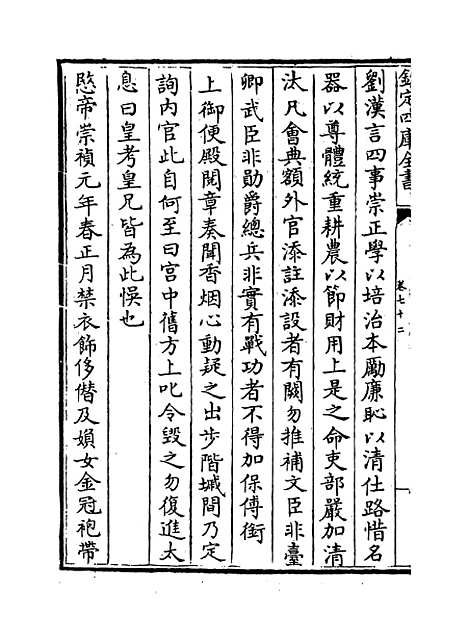 欽定四庫全書
卷七十二
劉漢言四事崇正學以培治本勵廉恥以清仕路惜名
器以尊體統重耕農以節財用上是之命吏部嚴加清
汰凡會典額外官添註添設者有闕勿推補文臣非臺
卿武臣非勛爵總兵非實有戰功者不得加保傅銜
上御便殿閱章奏聞香烟心動疑之出步階墄間乃定
詢内官此自何至曰宫中舊方上叱令毀之勿復進太
息曰皇考皇兄皆為此悞也
愍帝崇禎元年春正月禁衣飾侈僭及婦女金冠袍帶